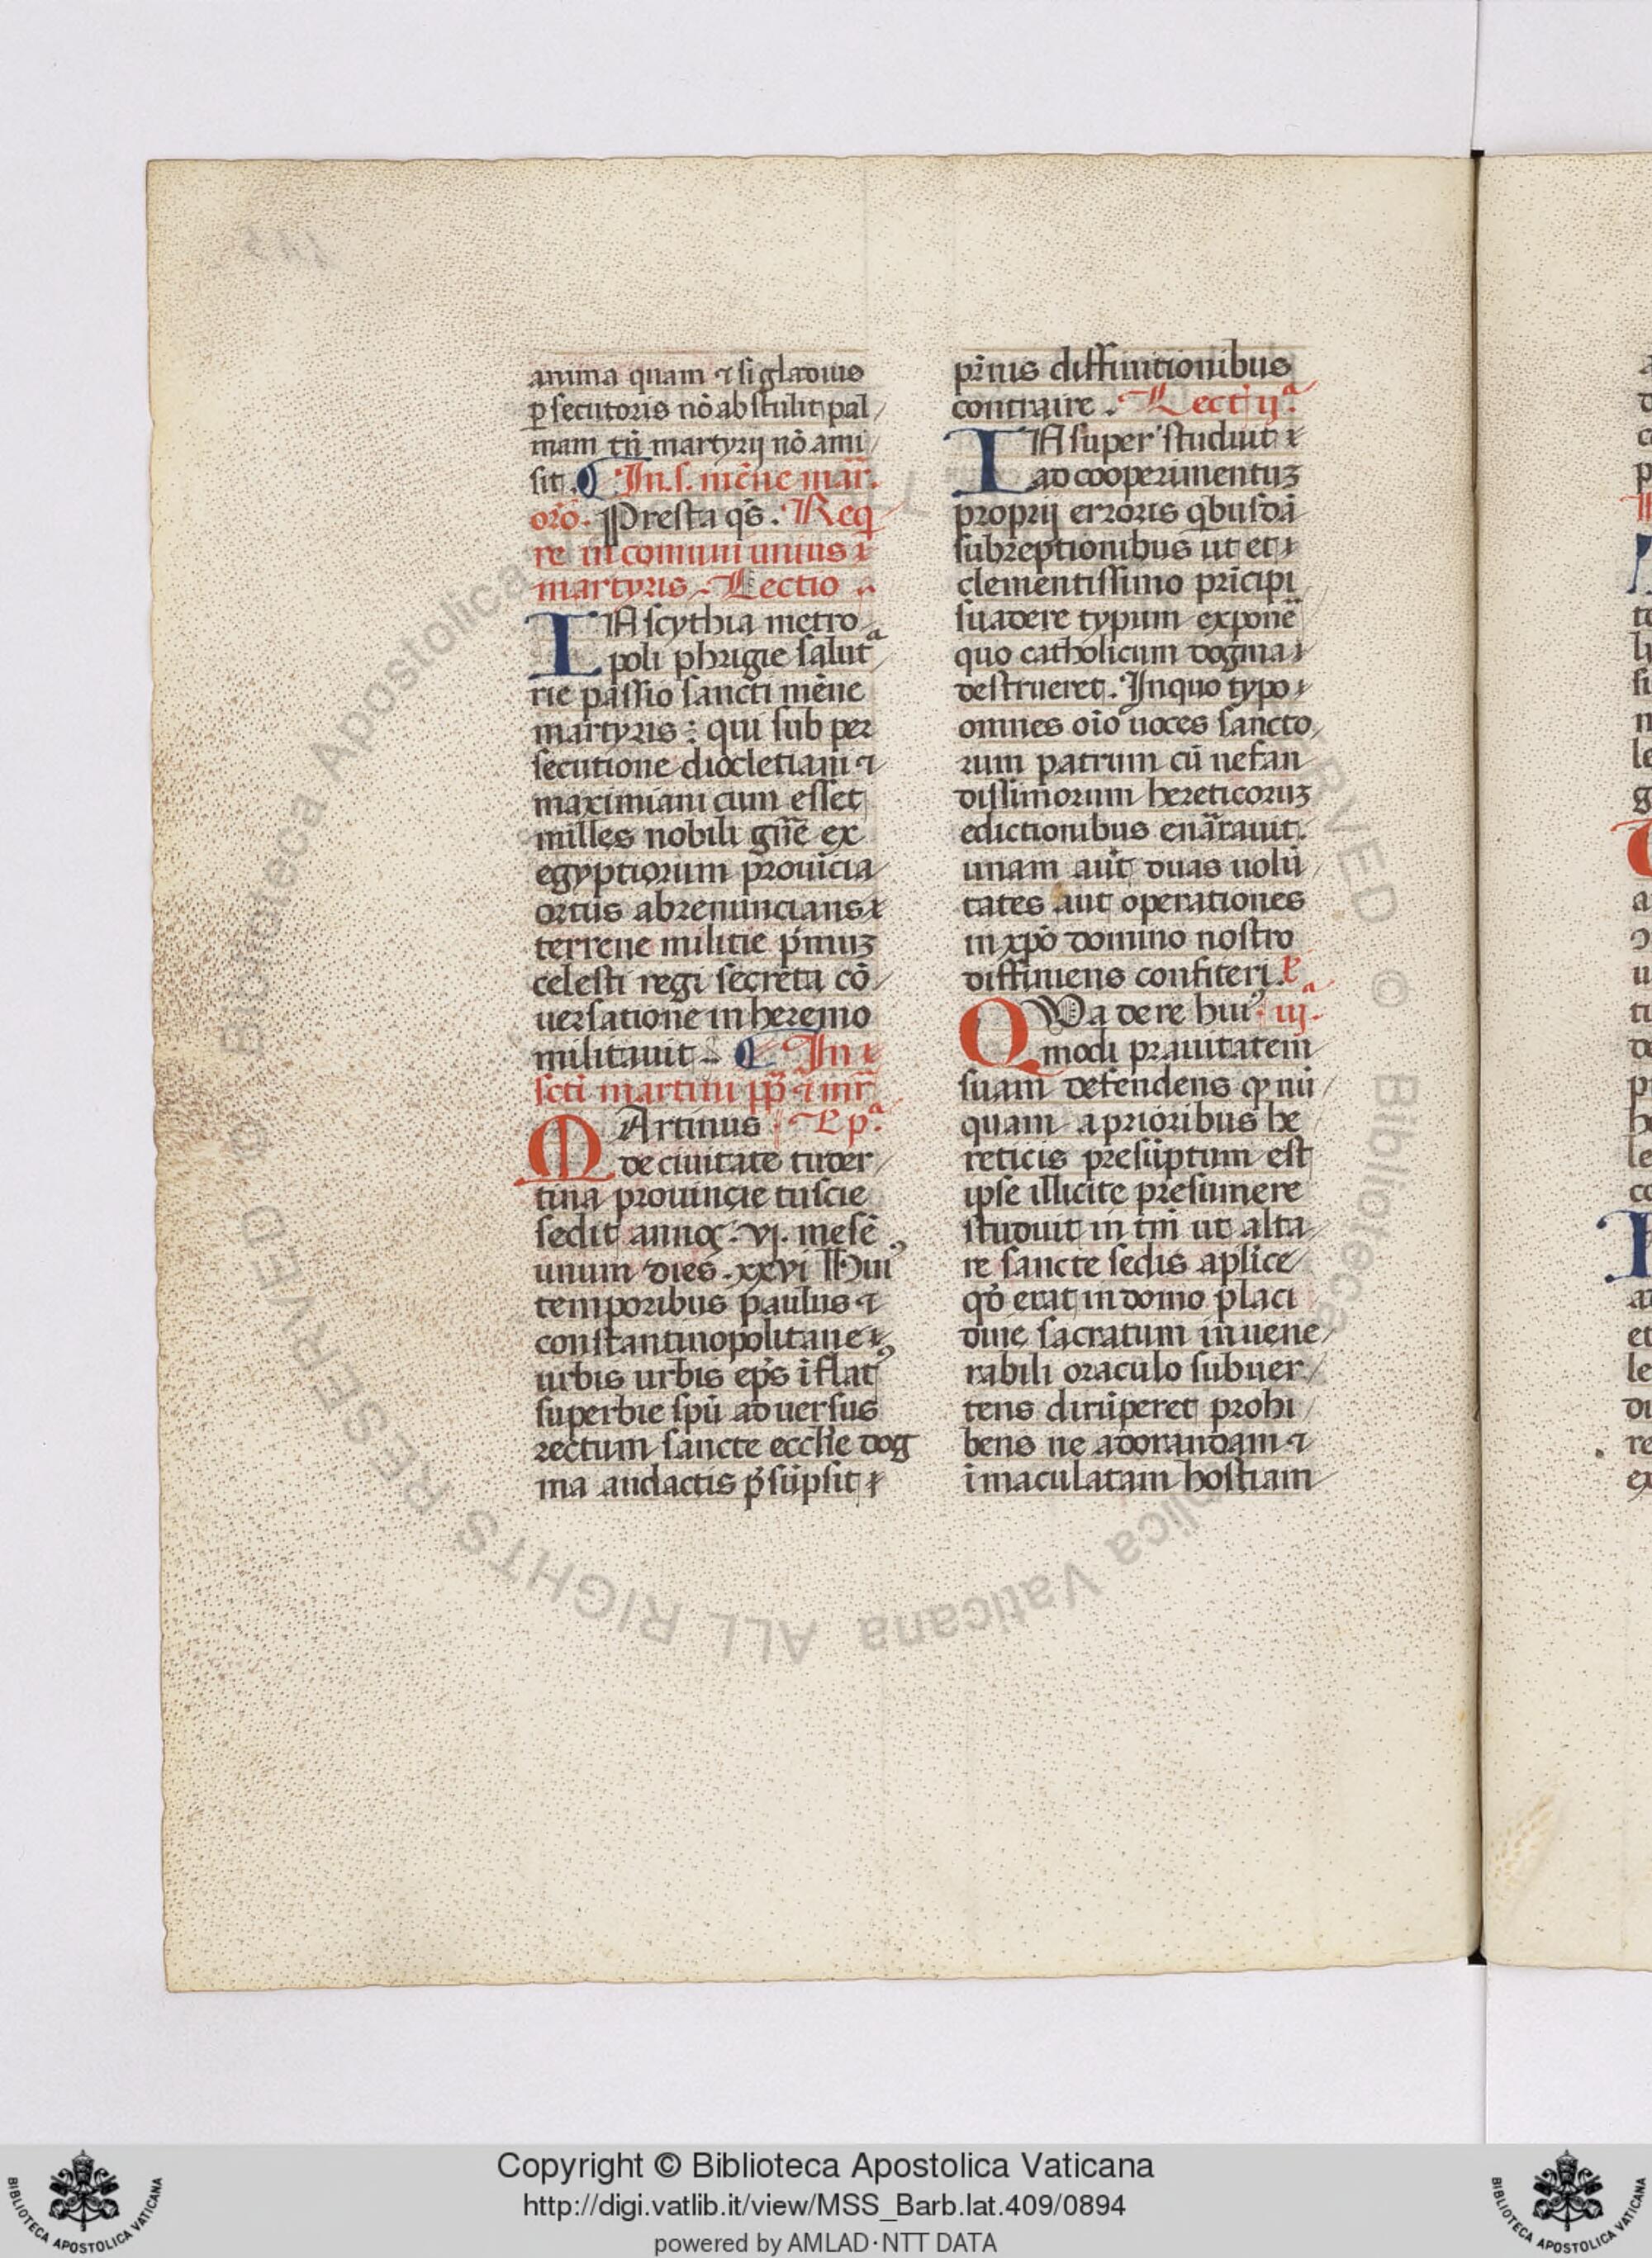 anima quam ⁊ si gladius
ꝑsecutoris nō abstulit pal
mam tn̄ martyrij nō ami
sit. In. s. mēne mar̄.
orō. Presta q̄s. Req
re in comuni unius
martyris. Lectio
IN scythia metro
poli phrigie salutᵃ
rie passio sancti mēne
martyris: qui sub per
secutione diocletiani ⁊
maximiani cum esset
milles nobili gn̄e ex
egyptiorum prouīcia
ortus abrenuncians
terrene militie pͥmuꝫ
celesti regi secreta cō
uersatione in heremo
militauit. In
scti martini pp̄ ⁊ mr̄
MArtinus L pᵃ.
de ciuitate tuder
tina prouincie tuscie
sedit annos. vj. mesē
unum dies. xxvi Huiꝰ
temporibus paulus ⁊
constantinopolitane
urbis urbis ep̄s īflatꝰ
superbie spū aduersus
rectum sancte eccl̄ie dog
ma audactis p̄sūpsit
pr̄nis diffinitionibus
contraire. Lect ijᵃ.
INsuper studuit
ad cooperimentuꝫ
proprij erroris qͥbusdā
subreptionibus ut et
clementissimo prīcipi
suadere typum exponē
quo catholicum dogma
destrueret. In quo typo
omnes oīo uoces sancto
rum patrum cū nefan
dissimorum hereticoruꝫ
edictionibus enārauit.
unam aūt duas uolū
tates aut operationes
in xpō domino nostro
diffiniens confiteri. L
QUa de re huiꝰ iijᵃ.
modi prauitatem
suam defendens qͦ nū
quam a prioribus he
reticis presūptum est
ipse illicite presumere
studuit in tm̄ ut alta
re sancte sedis ap̄lice
qd̄ erat in domo placi
die sacratum in uene
rabili oraculo subuer
tens dirūperet prohi
bens ne adorandam ⁊
īmaculatam hostiam
© Biblioteca Apostolica Vaticana ALL RIGHTS RESERVED
Copyright © Biblioteca Apostolica Vaticana
http://digi.vatlib.it/view/MSS_Barb.lat.409/0894
powered by AMLAD·NTT DATA
BIBLIOTECA APOSTOLICA VATICANA
BIBLIOTECA APOSTOLICA VATICANA